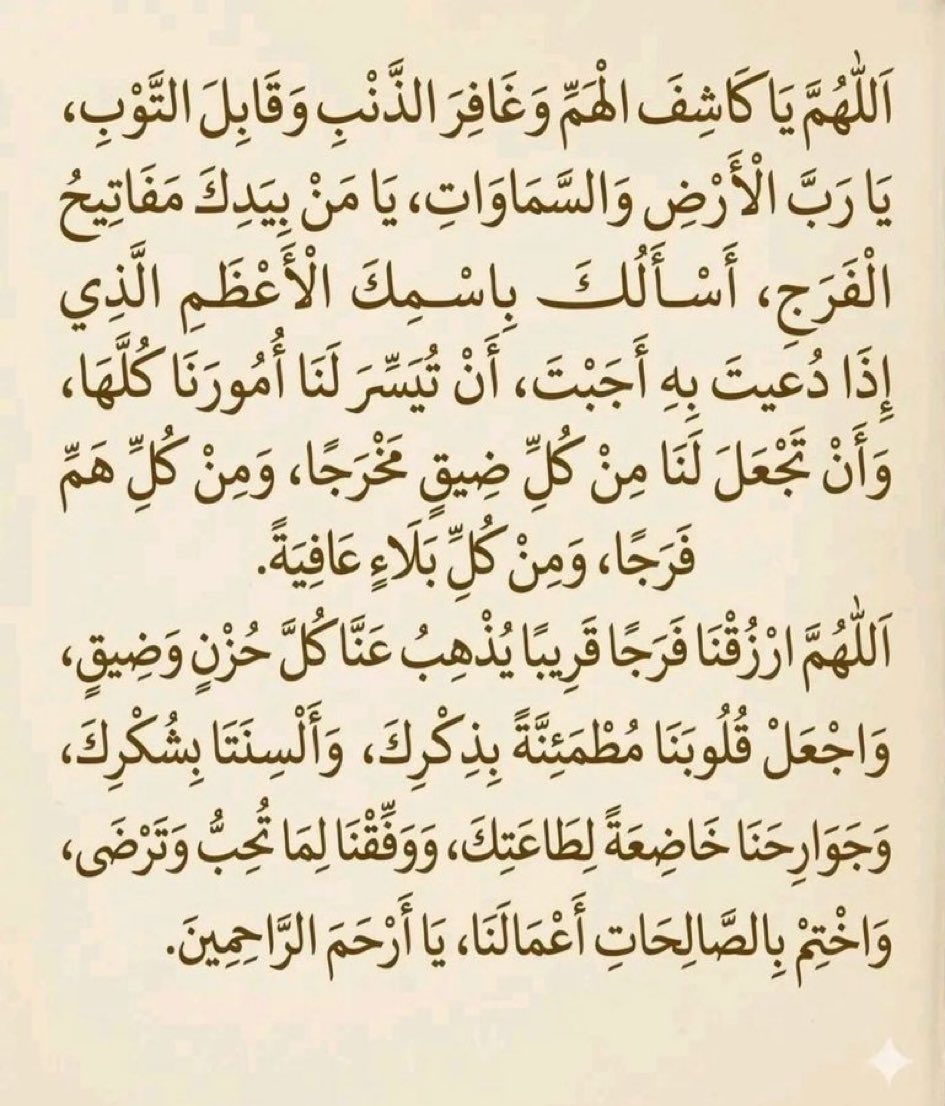 اَللّٰهُمَّ يَا كَاشِفَ الْهَمِّ وَغَافِرَ الذَّنْبِ وَقَابِلَ التَّوْبِ،
يَا رَبَّ الْأَرْضِ وَالسَّمَاوَاتِ، يَا مَنْ بِيَدِكَ مَفَاتِيحُ
الْفَرَجِ، أَسْأَلُكَ بِاسْمِكَ الْأَعْظَمِ الَّذِي
إِذَا دُعِيتَ بِهِ أَجَبْتَ، أَنْ تُيَسِّرَ لَنَا أُمُورَنَا كُلَّهَا،
وَأَنْ تَجْعَلَ لَنَا مِنْ كُلِّ ضِيقٍ مَخْرَجًا، وَمِنْ كُلِّ هَمٍّ
فَرَجًا، وَمِنْ كُلِّ بَلَاءٍ عَافِيَةً.
اَللّٰهُمَّ ارْزُقْنَا فَرَجًا قَرِيبًا يُذْهِبُ عَنَّا كُلَّ حُزْنٍ وَضِيقٍ،
وَاجْعَلْ قُلُوبَنَا مُطْمَئِنَّةً بِذِكْرِكَ، وَأَلْسِنَتَا بِشُكْرِكَ،
وَجَوَارِحَنَا خَاضِعَةً لِطَاعَتِكَ، وَوَفِّقْنَا لِمَا تُحِبُّ وَتَرْضَى،
وَاخْتِمْ بِالصَّالِحَاتِ أَعْمَالَنَا، يَا أَرْحَمَ الرَّاحِمِينَ.